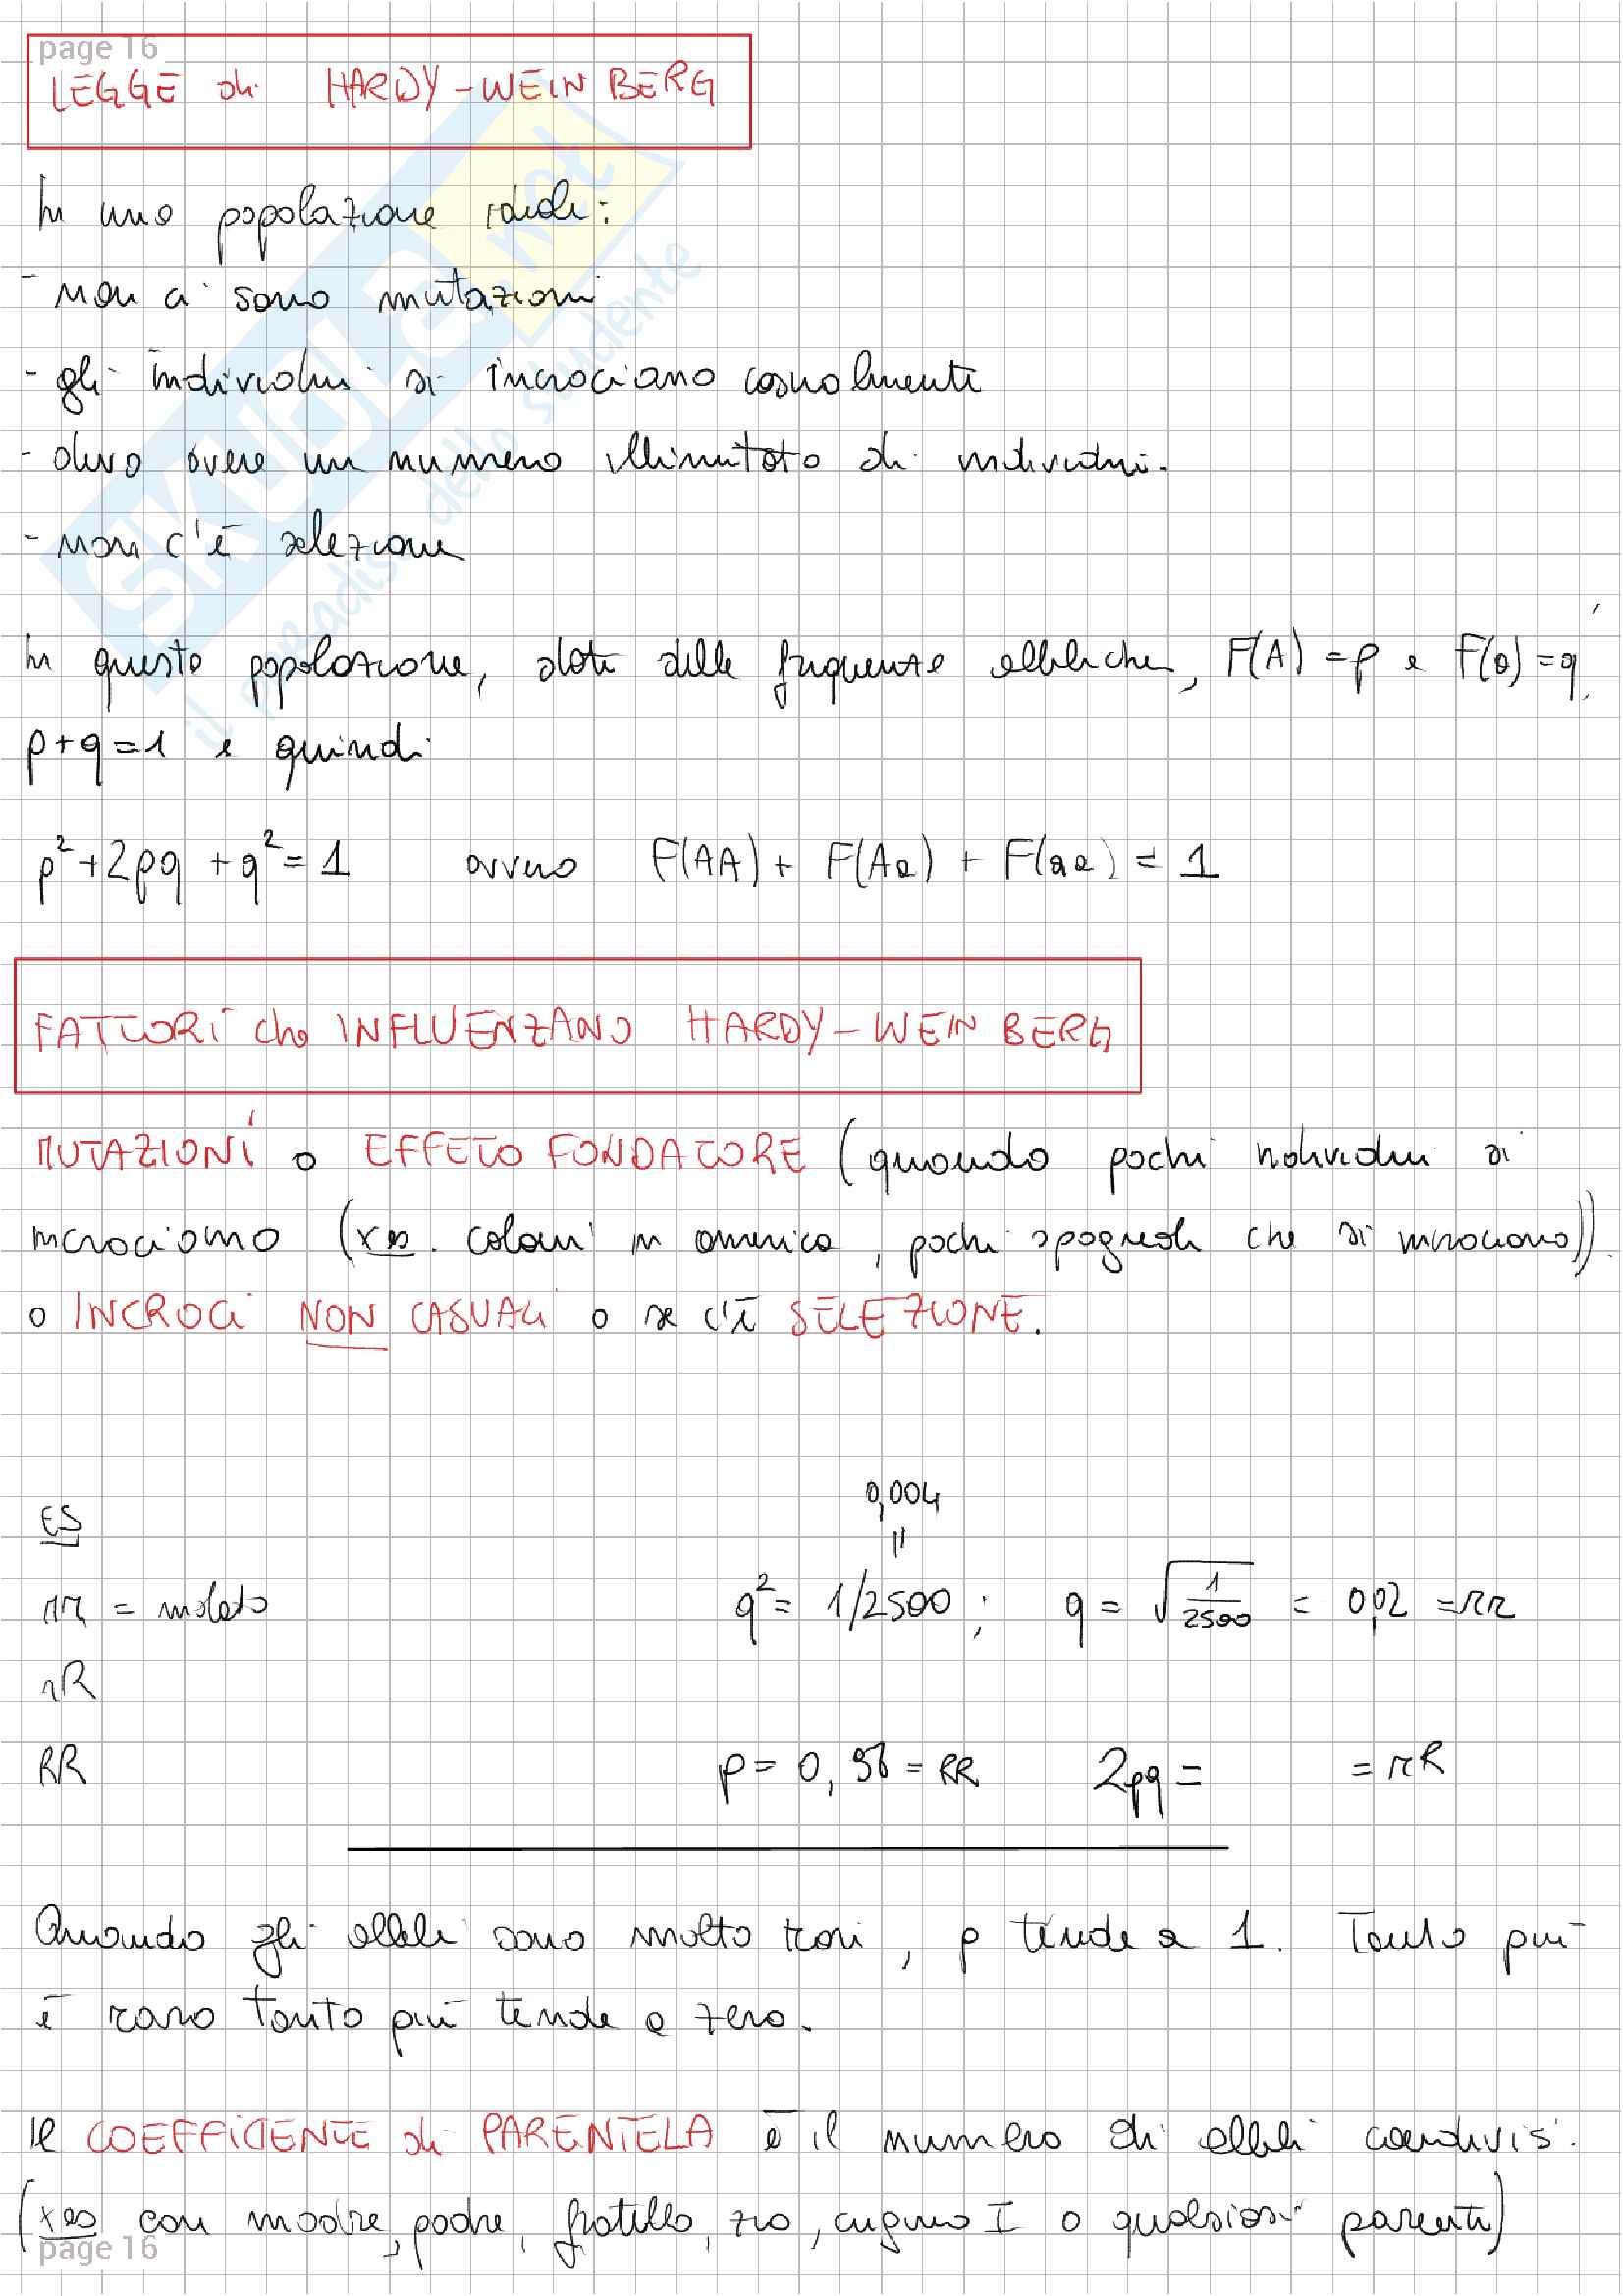 page 16
LEGGE di HARDY-WEINBERG
In una popolazione ideale:
- non ci sono mutazioni
- gli individui si incrociano casualmente
- devo avere un numero illimitato di individui.
- non c'è selezione
In questa popolazione, date delle frequenze alleliche, F(A)=p e F(a)=q,
p+q=1 e quindi
p²+2pq+q²=1 ovvero F(AA) + F(Aa) + F(aa) = 1
FATTORI che INFLUENZANO HARDY-WEINBERG
MUTAZIONI o EFFETO FONDATORE (quando pochi individui si
incrociano (x es. coloni in america, pochi spagnoli che si incrociano)).
o INCROCI NON CASUALI o se c'è SELEZIONE.
0,004
ES
=
rr = malato q² = 1/2500 ; q = √1/2500 = 0,02 = rr
rR
RR p = 0,98 = RR 2pq = = rR
Quando gli alleli sono molto rari, p tende a 1. Tanto più
è raro tanto più tende a zero.
Il COEFFICIENTE di PARENTELA è il numero di alleli condivisi.
(x es con madre, padre, fratello, zio, cugino I o qualsiasi parente)
page 16
SKUOLA.net
il paradiso dello studente